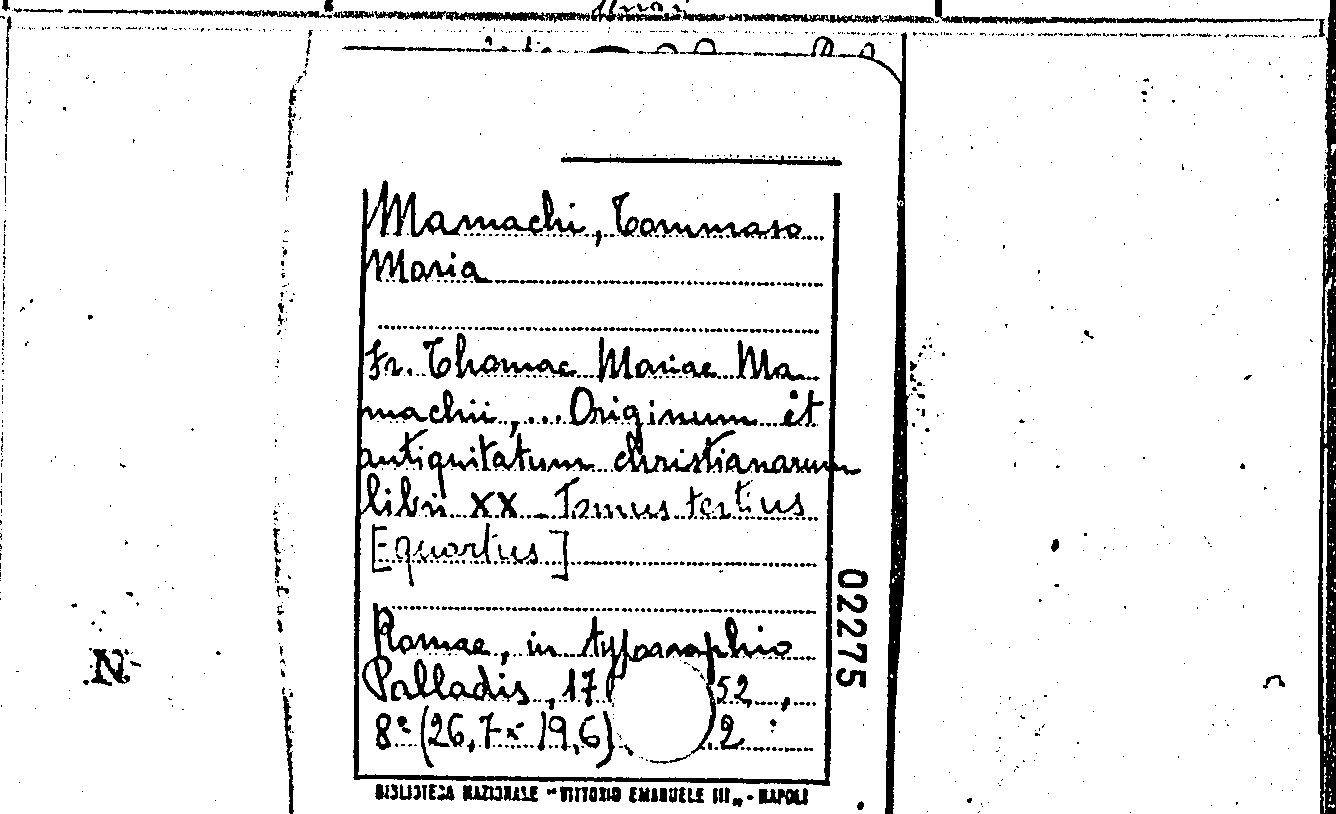 Mamachi, Tommaso
Maria
Fr. Thomae Mariae Ma
machii, ... Originum et
antiquitatum christianarum
libri XX Tomus tertius
[Equartus]
Romae, in typographio
Palladis, 17 52,
8° (26,7 x 19,6) 2
02275
N
BIBLIOTECA NAZIONALE "VITTORIO EMANUELE III" - NAPOLI